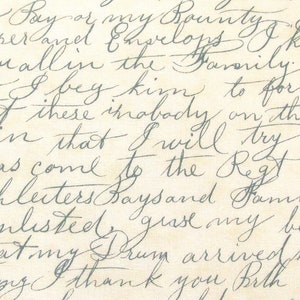 Pay or my Bounty
and Envelops I
all in the Family
I beg him to for
these is nobody on th
in that I will try
as come to the Regt
Pays and Fam
nlisted, give my b
at my Drum arrived s
I thank you, Bith